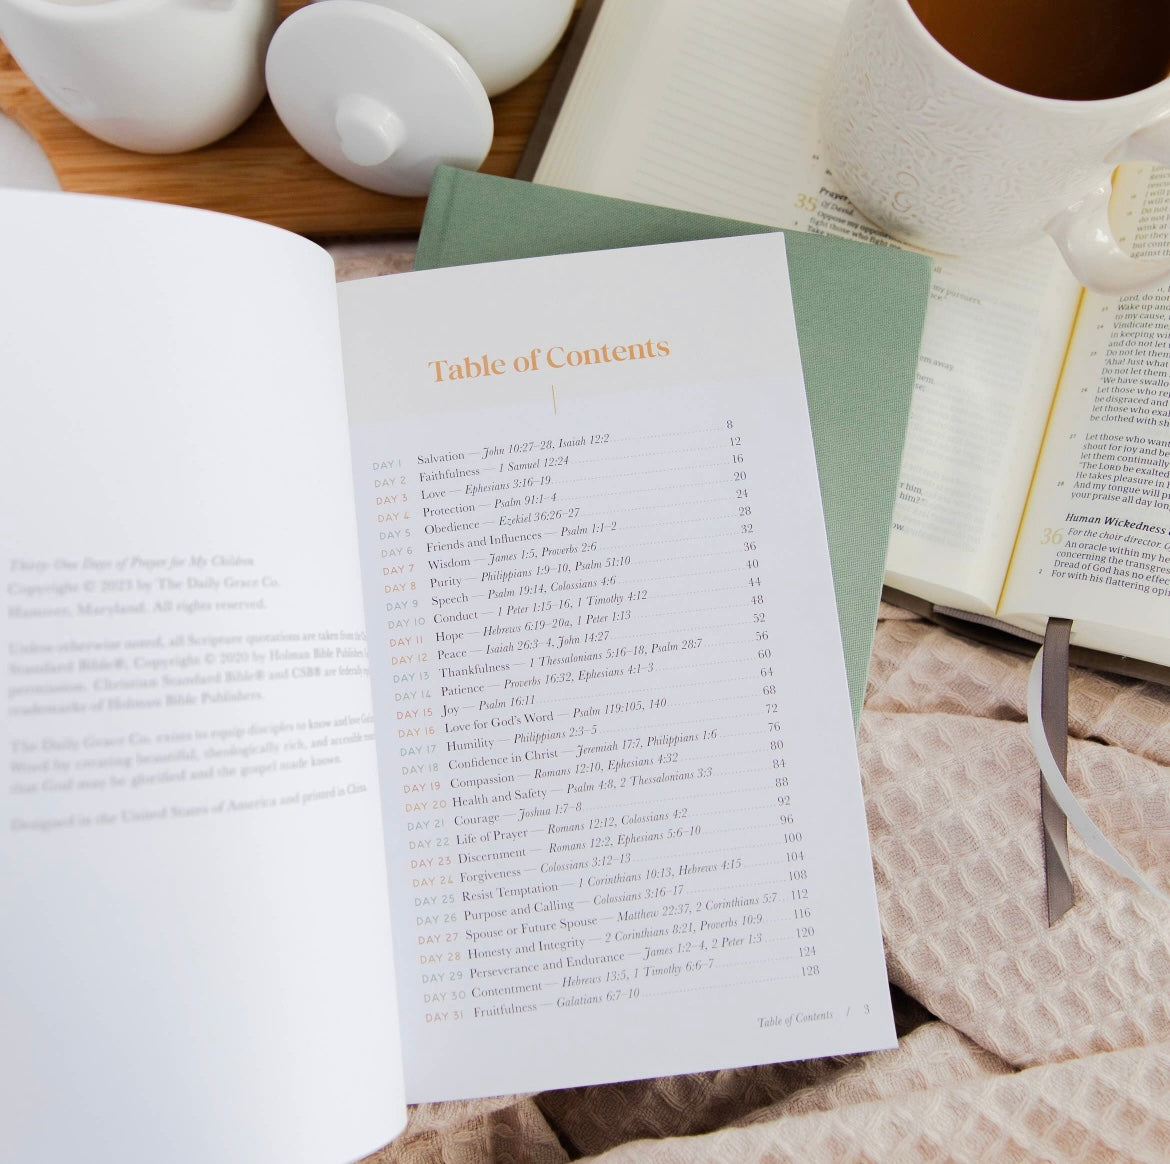 Thirty-One Days of Prayer for My Children
Copyright © 2023 by The Daily Grace Co.
Hanover, Maryland. All rights reserved.
Unless otherwise noted, all Scripture quotations are taken from
Standard Bible®, Copyright © 2020 by Holman Bible
permission. Christian Standard Bible® and CSB® are federally
trademarks of Holman Bible Publishers.
The Daily Grace Co. exists to equip disciples to know and love
Word by creating beautiful, theologically rich, and accessible
that God may be glorified and the gospel made known.
Designed in the United States of America and printed in China
Table of Contents
DAY 1 Salvation — John 10:27–28, Isaiah 12:2 8
DAY 2 Faithfulness — 1 Samuel 12:24 12
DAY 3 Love — Ephesians 3:16–19 16
DAY 4 Protection — Psalm 91:1–4 20
DAY 5 Obedience — Ezekiel 36:26–27 24
DAY 6 Friends and Influences — Psalm 1:1–2 28
DAY 7 Wisdom — James 1:5, Proverbs 2:6 32
DAY 8 Purity — Philippians 1:9–10, Psalm 51:10 36
DAY 9 Speech — Psalm 19:14, Colossians 4:6 40
DAY 10 Conduct — 1 Peter 1:15–16, 1 Timothy 4:12 44
DAY 11 Hope — Hebrews 6:19–20a, 1 Peter 1:13 48
DAY 12 Peace — Isaiah 26:3–4, John 14:27 52
DAY 13 Thankfulness — 1 Thessalonians 5:16–18, Psalm 28:7 56
DAY 14 Patience — Proverbs 16:32, Ephesians 4:1–3 60
DAY 15 Joy — Psalm 16:11 64
DAY 16 Love for God's Word — Psalm 119:105, 140 68
DAY 17 Humility — Philippians 2:3–5 72
DAY 18 Confidence in Christ — Jeremiah 17:7, Philippians 1:6 76
DAY 19 Compassion — Romans 12:10, Ephesians 4:32 80
DAY 20 Health and Safety — Psalm 4:8, 2 Thessalonians 3:3 84
DAY 21 Courage — Joshua 1:7–8 88
DAY 22 Life of Prayer — Romans 12:12, Colossians 4:2 92
DAY 23 Discernment — Romans 12:2, Ephesians 5:6–10 96
DAY 24 Forgiveness — Colossians 3:12–13 100
DAY 25 Resist Temptation — 1 Corinthians 10:13, Hebrews 4:15 104
DAY 26 Purpose and Calling — Colossians 3:16–17 108
DAY 27 Spouse or Future Spouse — Matthew 22:37, 2 Corinthians 5:7 112
DAY 28 Honesty and Integrity — 2 Corinthians 8:21, Proverbs 10:9 116
DAY 29 Perseverance and Endurance — James 1:2–4, 2 Peter 1:3 120
DAY 30 Contentment — Hebrews 13:5, 1 Timothy 6:6–7 124
DAY 31 Fruitfulness — Galatians 6:7–10 128
Table of Contents / 3
Prayer
35 Of David.
Oppose my
fight those who fight
Take
my pursuers,
him?"
For they
but
against
Lord, do not
Wake up and
to my cause,
24 Vindicate me,
in keeping
and do not let
25 Do not let them
"Aha! Just what
Do not let them
"We have
26 Let those who
be disgraced and
let those who
be clothed with
27 Let those who want
shout for joy and
let them continually
"The LORD be exalted
He takes pleasure in
28 And my tongue will
your praise all day
Human Wickedness
36 For the choir director.
An oracle within my
concerning the
Dread of God has no
2 For with his flattering